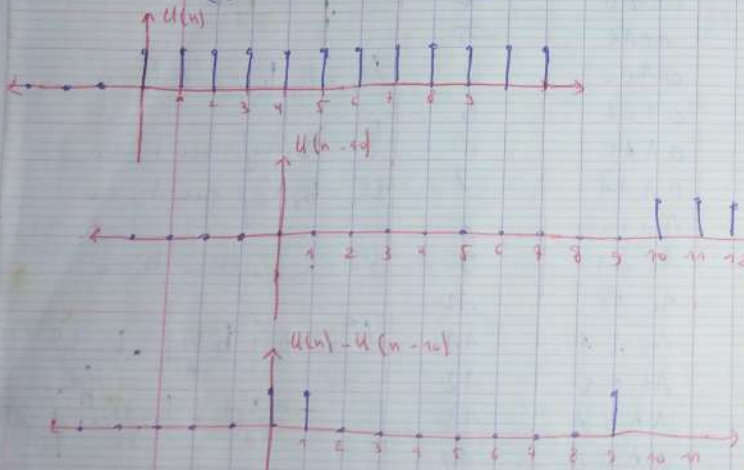 U(n)
1 2 3 4 5 6 7 8 9
U(n - 10)
1 2 3 4 5 6 7 8 9 10 11 12
U(n) - U(n - 10)
1 2 3 4 5 6 7 8 9 10 11